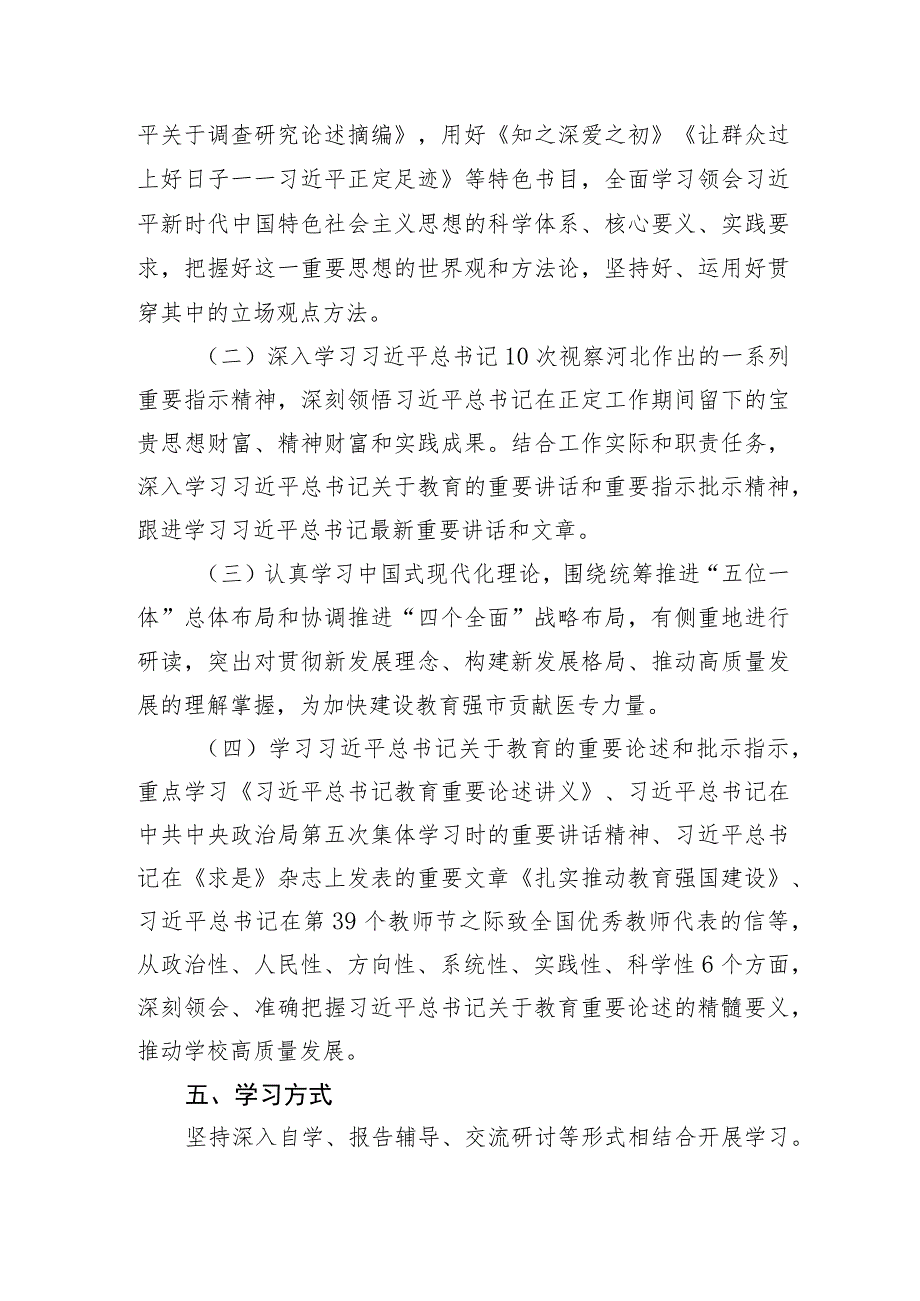 平关于调查研究论述摘编》，用好《知之深爱之初》《让群众过
上好日子一一习近平正定足迹》等特色书目，全面学习领会习近
平新时代中国特色社会主义思想的科学体系、核心要义、实践要
求，把握好这一重要思想的世界观和方法论，坚持好、运用好贯
穿其中的立场观点方法。
（二）深入学习习近平总书记 10 次视察河北作出的一系列
重要指示精神，深刻领悟习近平总书记在正定工作期间留下的宝
贵思想财富、精神财富和实践成果。结合工作实际和职责任务，
深入学习习近平总书记关于教育的重要讲话和重要指示批示精神，
跟进学习习近平总书记最新重要讲话和文章。
（三）认真学习中国式现代化理论，围绕统筹推进“五位一
体”总体布局和协调推进“四个全面”战略布局，有侧重地进行
研读，突出对贯彻新发展理念、构建新发展格局、推动高质量发
展的理解掌握，为加快建设教育强市贡献医专力量。
（四）学习习近平总书记关于教育的重要论述和批示指示，
重点学习《习近平总书记教育重要论述讲义》、习近平总书记在
中共中央政治局第五次集体学习时的重要讲话精神、习近平总书
记在《求是》杂志上发表的重要文章《扎实推动教育强国建设》、
习近平总书记在第 39 个教师节之际致全国优秀教师代表的信等，
从政治性、人民性、方向性、系统性、实践性、科学性 6 个方面，
深刻领会、准确把握习近平总书记关于教育重要论述的精髓要义，
推动学校高质量发展。
五、学习方式
坚持深入自学、报告辅导、交流研讨等形式相结合开展学习。